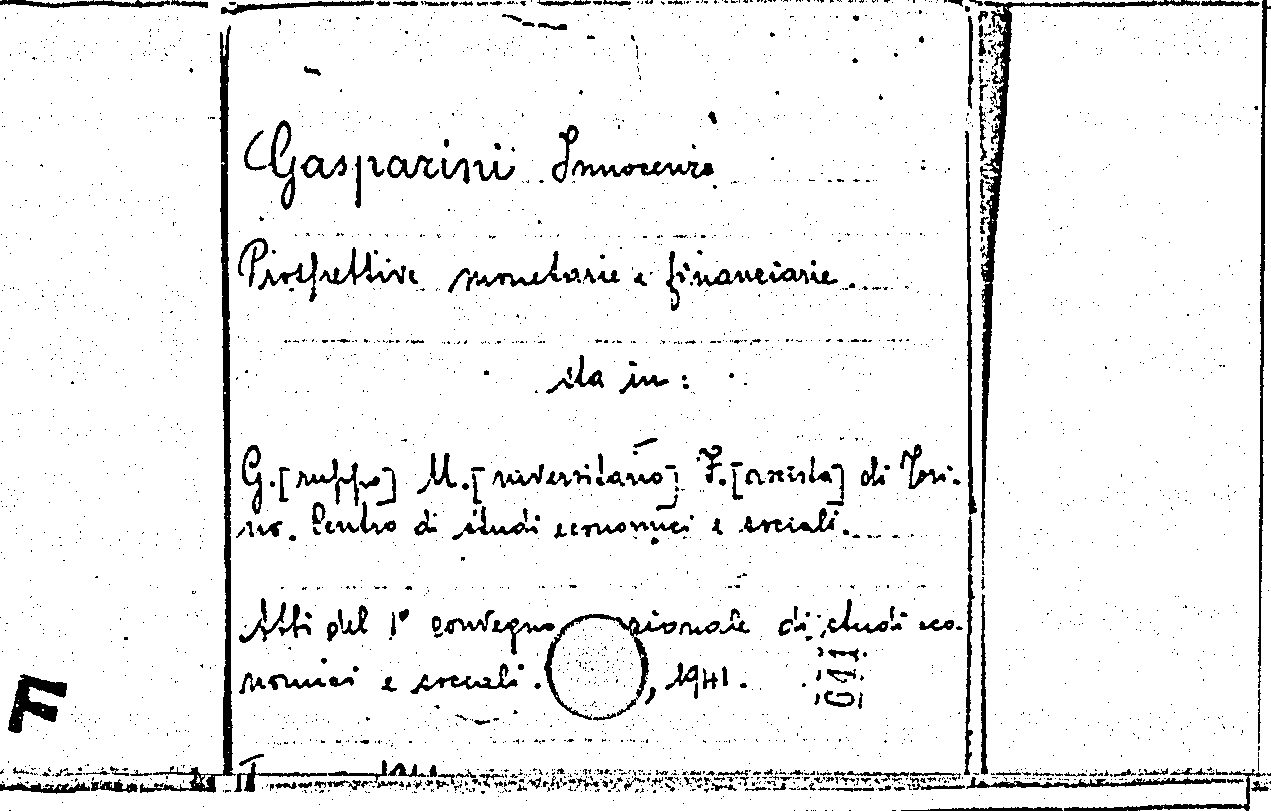 Gasparini Innocenzo
Prospettive monetarie e financiarie.
sta in:
G.[ruppo] U.[niversitario] F.[ascista] di Tori-
no. Centro di studi economici e sociali.
Atti del 1° convegno zionale di studi eco-
nomici e sociali. , 1941.
F